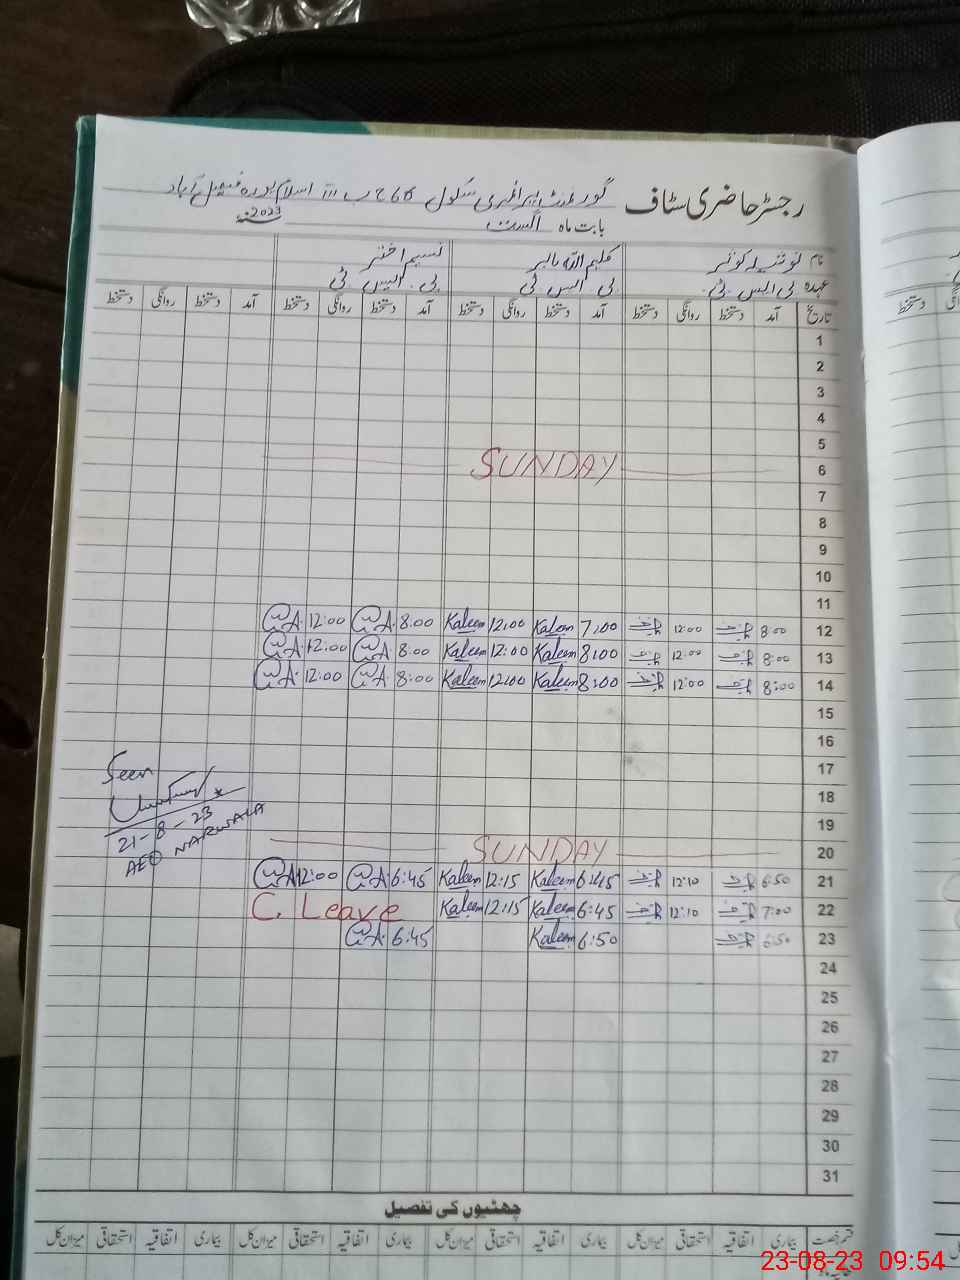 رجسٹر حاضری سٹاف گورنمنٹ پرائمری سکول 266 ر ب اسلام پورہ فیصل آباد
بابت ماہ اگست 2023
نام کوثر کلیم اللہ بابر نسیم اختر
عہدہ پی ایس ٹی پی ایس ٹی پی ایس ٹی
تاریخ آمد دستخط روانگی دستخط آمد دستخط روانگی دستخط آمد دستخط روانگی دستخط آمد دستخط روانگی دستخط
1
2
3
4
5
6 SUNDAY
7
8
9
10
11
12 8:00 12:00 7:00 Kaleem 12:00 Kaleem 8:00 12:00
13 8:00 12:00 8:00 Kaleem 12:00 Kaleem 8:00 12:00
14 8:00 12:00 8:00 Kaleem 12:00 Kaleem 8:00 12:00
15
16
17
18
19
20 SUNDAY
21 6:50 12:10 6:45 Kaleem 12:15 Kaleem 6:45 12:00
22 7:00 12:10 6:45 Kaleem 12:15 Kaleem C. Leave
23 6:50 6:50 Kaleem 6:45
24
25
26
27
28
29
30
31
Seen
21-8-23
AEO NARWALA
چھٹیوں کی تفصیل
قسم رخصت بیماری اتفاقیہ استحقاقی میزان کل بیماری اتفاقیہ استحقاقی میزان کل بیماری اتفاقیہ استحقاقی میزان کل بیماری اتفاقیہ استحقاقی میزان کل
دستخط
23-08-23 09:54